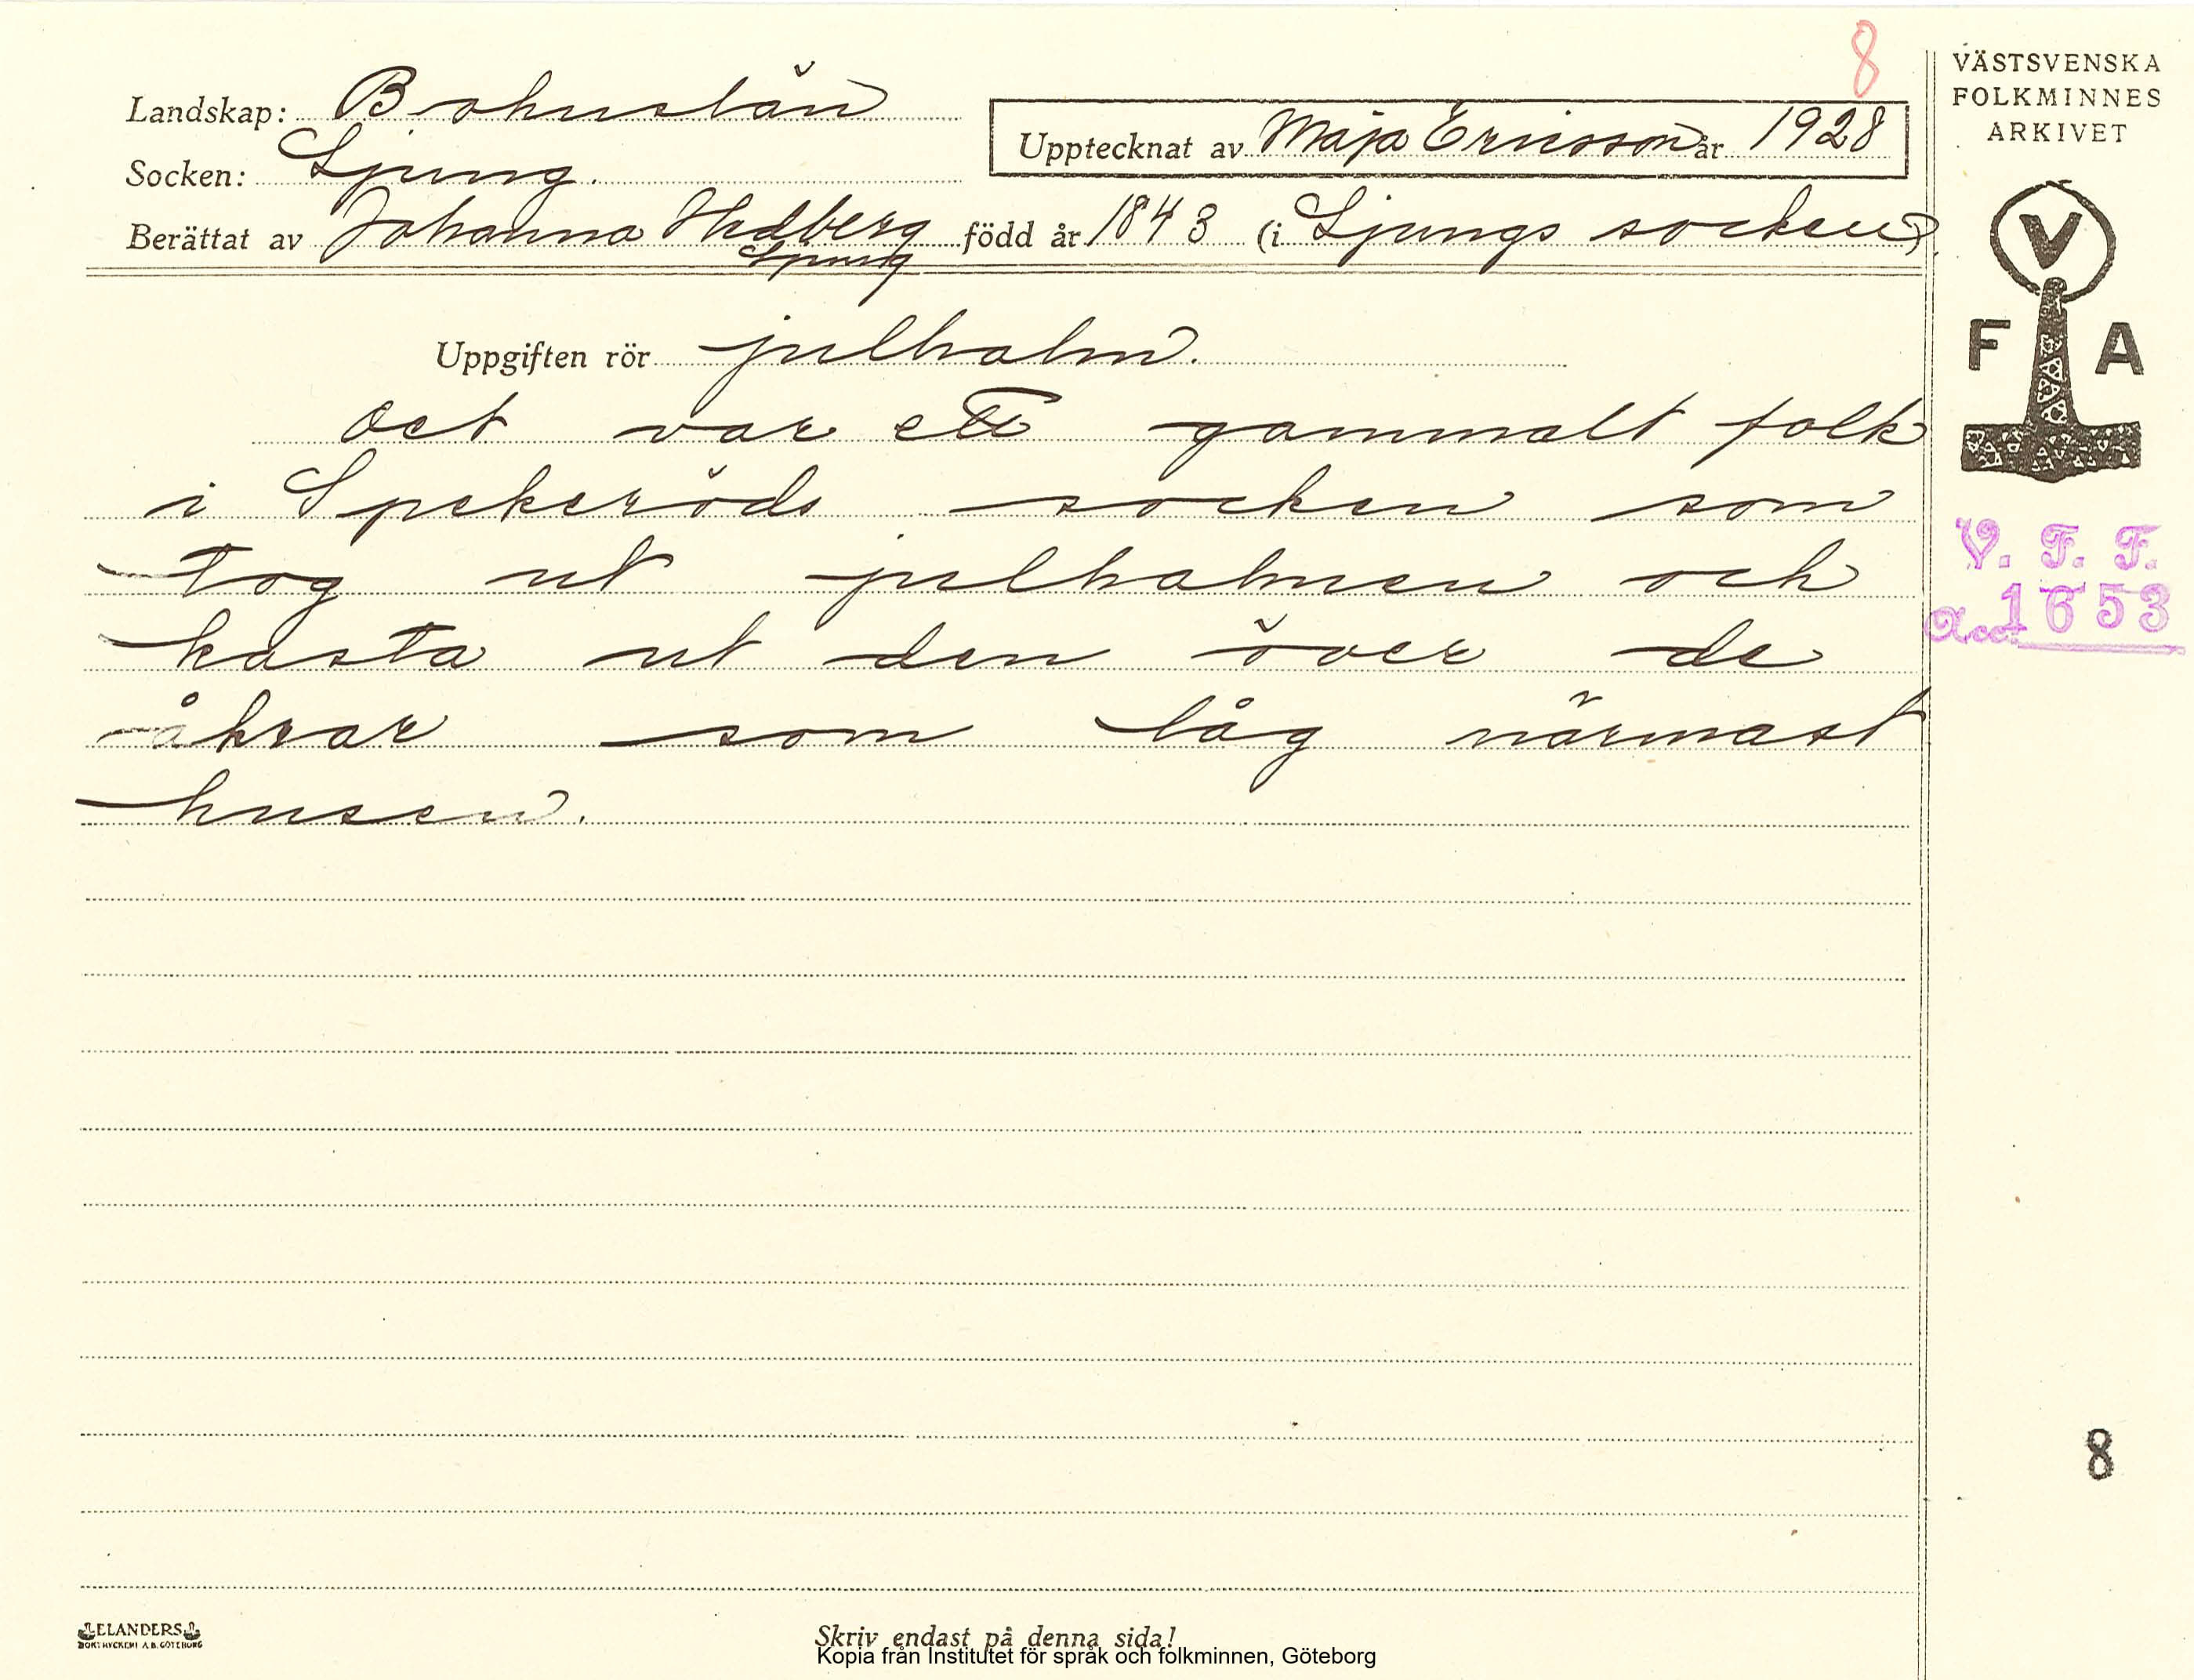 8
Landskap: Bohuslän
Socken: Ljung.
Upptecknat av Maja Ericsson år 1928
Berättat av Johanna Hedberg född år 1843 (i Ljungs socken)
Ljung
Uppgiften rör julhalm.
Det var ett gammalt folk
i Spekeröds socken som
tog ut julhalmen och
kasta ut den över de
åkrar som låg närmast
husen.
VÄSTSVENSKA
FOLKMINNES
ARKIVET
V
F A
V. F. F.
Acc. 1653
8
ELANDERS
BOKTRYCKERI A.B. GÖTEBORG
Skriv endast på denna sida!
Kopia från Institutet för språk och folkminnen, Göteborg